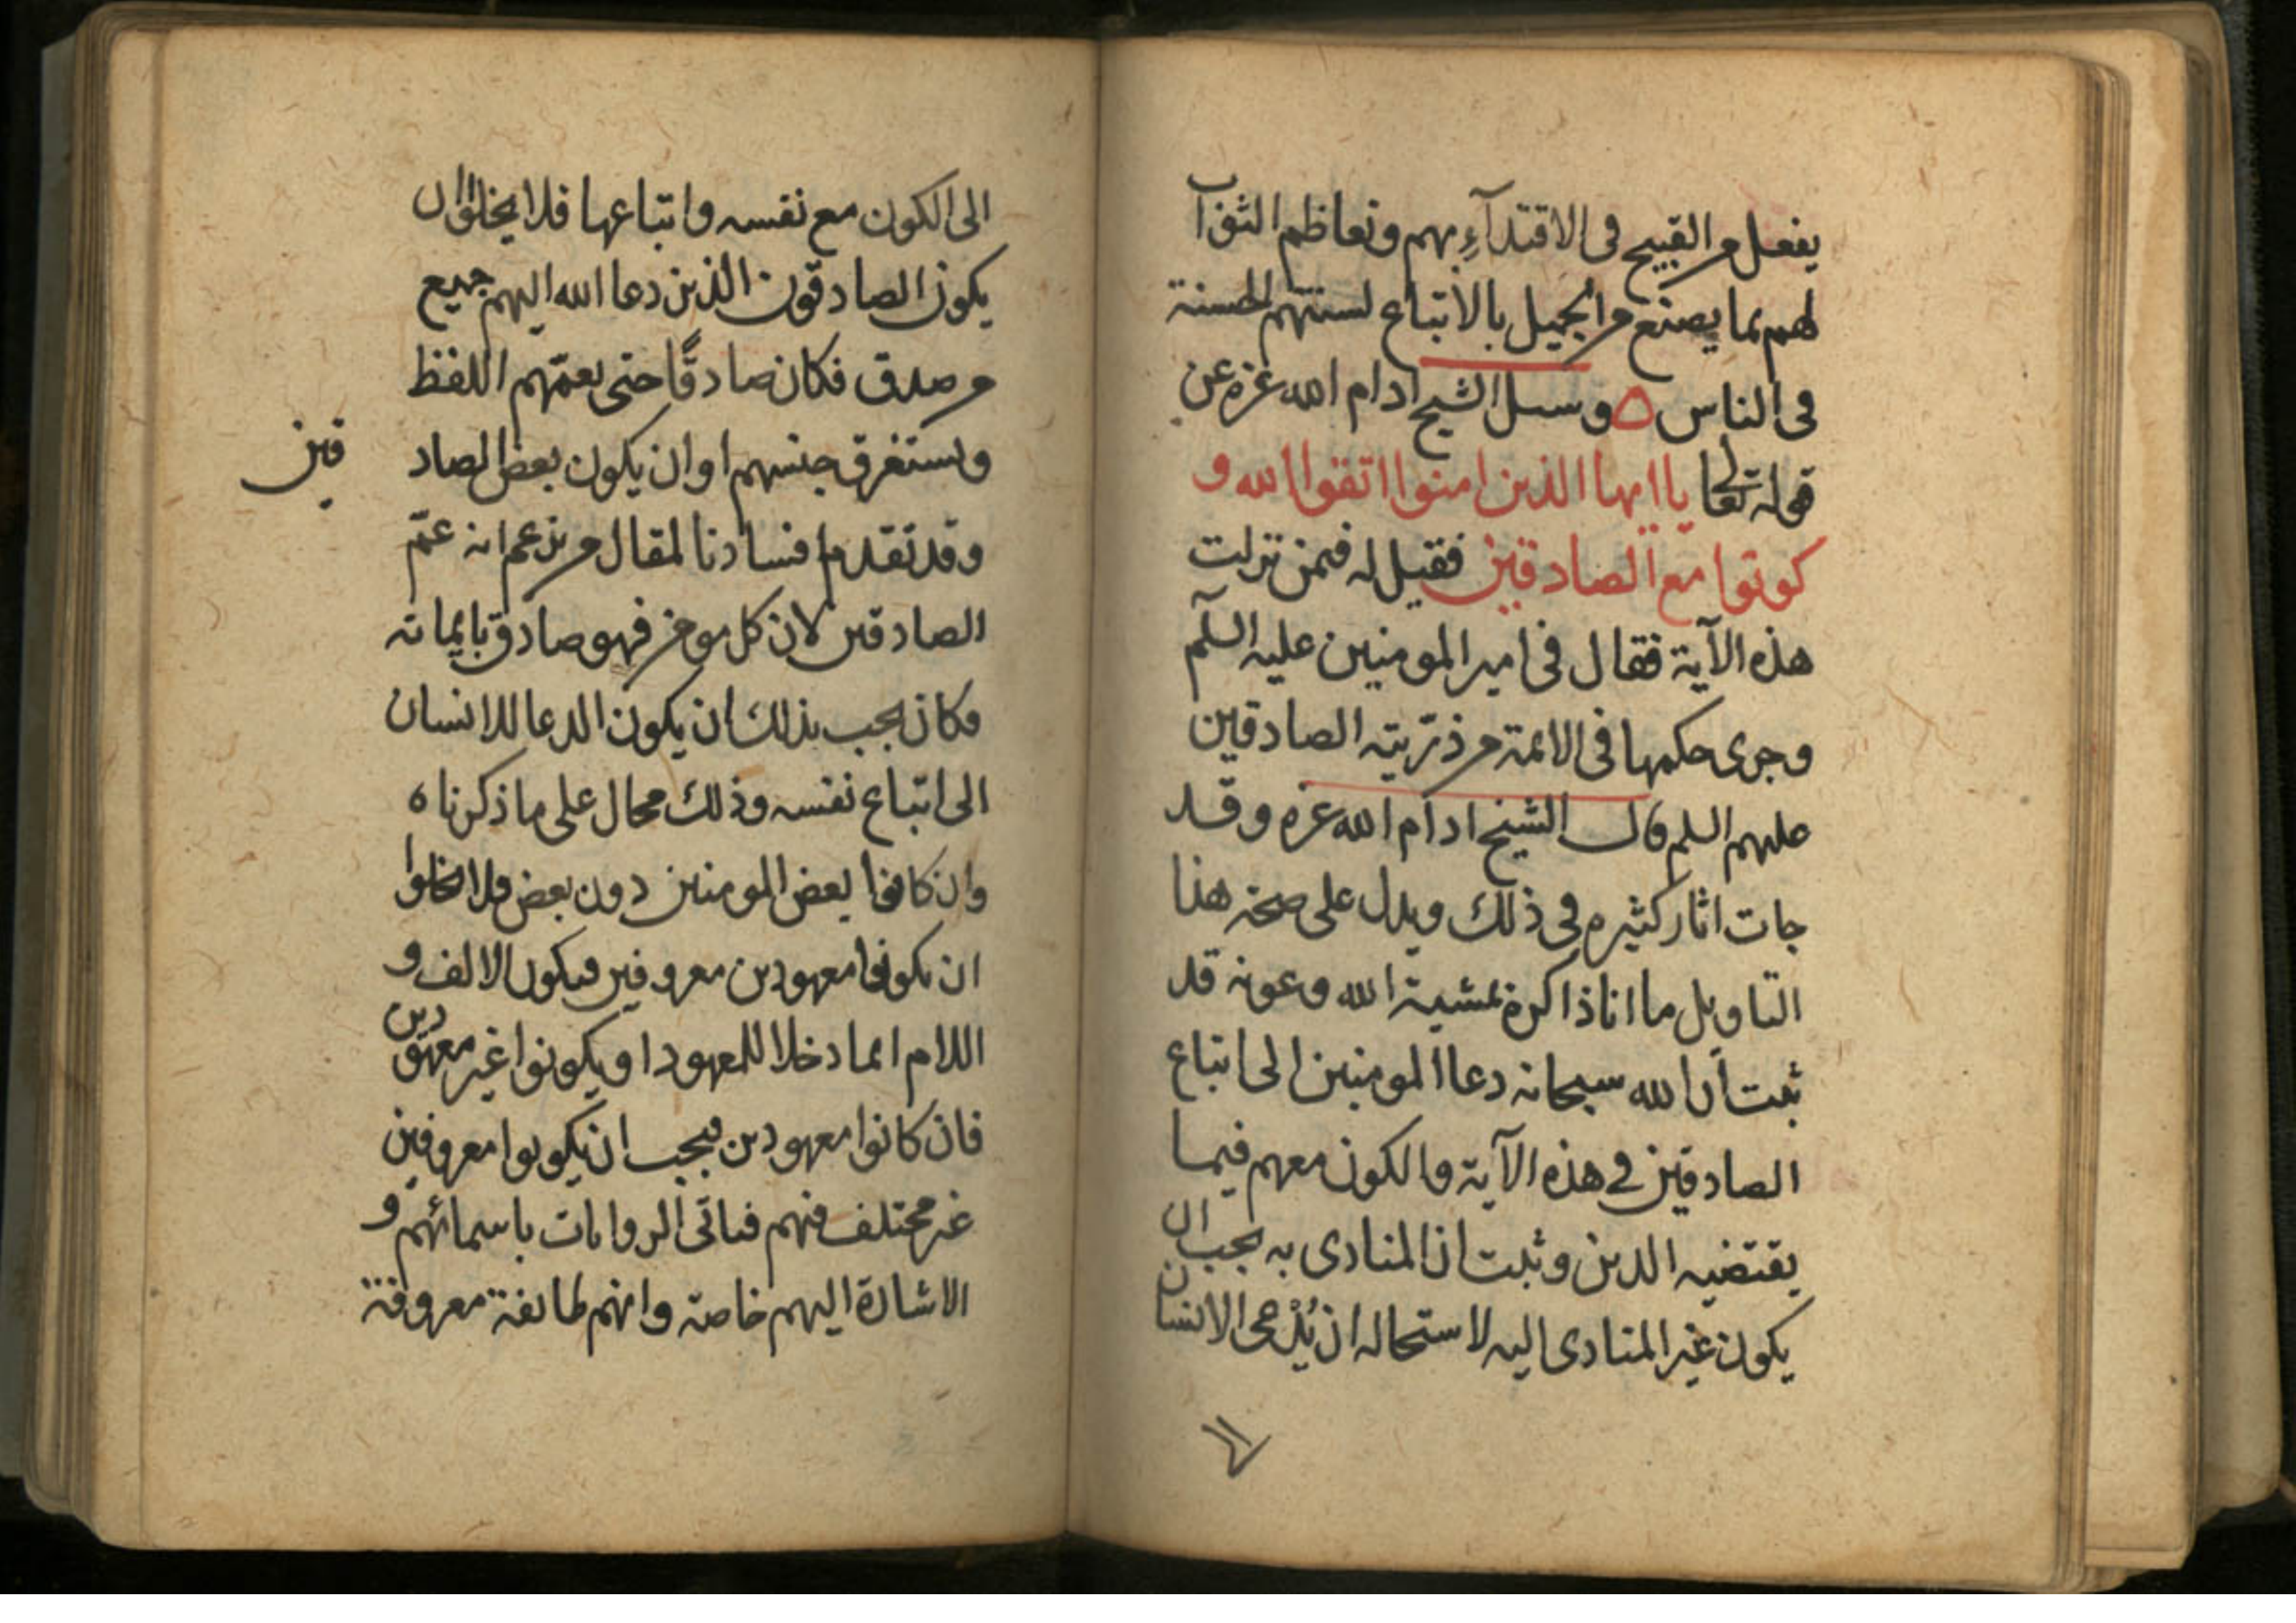 يفعل من القبيح في الاقتدآء بهم وتعاظم الثواب
لهم بما يصنع من الجميل بالاتباع لسنتهم الحسنة
في الناس ه وسىل الشيخ ادام الله عزه عن
قوله تعالى يا ايها الذين امنوا اتقوا الله و
كونوا مع الصادقين فقيل له فيمن نزلت
هذه الآية فقال في امير المومنين عليه السلم
وجرى حكمها في الائمة من ذرّيته الصادقين
عليهم السلم قال الشيخ ادام الله عزه وقد
جات اثار كثيره في ذلك ويدل على صحة هذا
التاويل ما انا ذاكره بمشية الله وعونه قد
ثبت أن الله سبحانه دعا المومنين الى اتباع
الصادقين في هذه الآية والكون معهم فيما
يقتضيه الدين وثبت ان المنادى به يجب ان
يكون غير المنادى اليه لاستحاله ان يُدْعى الانسان
الى الكون مع نفسه واتباعها فلا يخلوا ان
يكون الصادقون الذين دعا الله اليهم جميع
من صدق فكان صادقًا حتى يعمّهم اللفظ
ويستغرق جنسهم او ان يكون بعض الصاد
قين
وقد تقدم افسادنا لمقال من يزعم انه عمّ
الصادقين لان كل مومن فهو صادق بايمانه
فكان يجب بذلك ان يكون الدعا للانسان
الى اتباع نفسه وذلك محال على ما ذكرناه
وان كانوا بعض المومنين دون بعض فلا يخلوا
ان يكونوا معهودين معروفين فيكون الالف و
اللام انما دخلا للمعهود او يكونوا غير معهودين
فان كانوا معهودين فيجب ان يكونوا معروفين
غير مختلف فيهم فياتي الروايات باسمائهم و
الاشارة اليهم خاصة وانهم طايفة معروفة